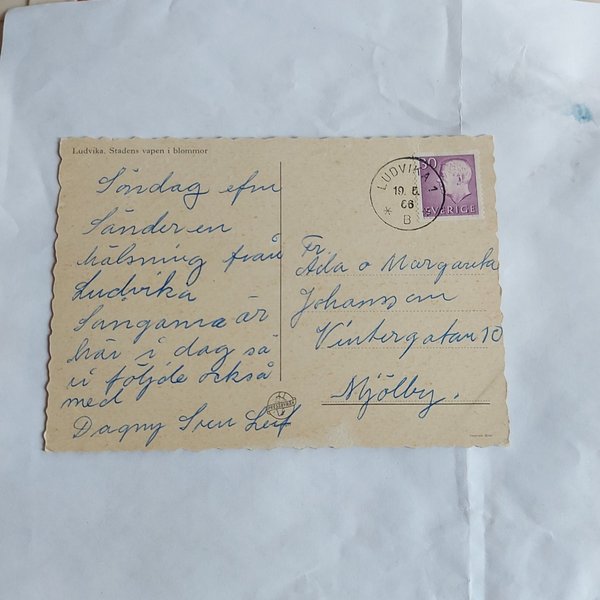 Ludvika. Stadens vapen i blommor
Söndag efm
Sänder en
hälsning från
Ludvika
Sångarna är
här i dag så
vi följde också
med
Dagny Sven Leif
LUDVIKA 1
19. 6.
66
B
SVERIGE
Fr
Ada o Margareta
Johansson
Vintergatan 10
Mjölby.